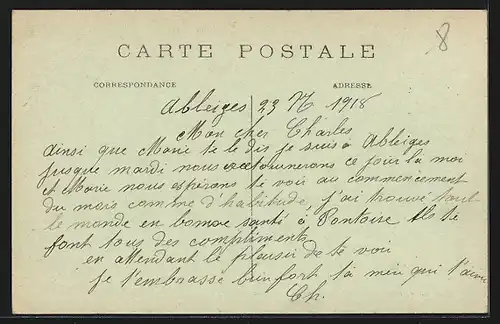 8
CARTE POSTALE
CORRESPONDANCE
ADRESSE
Ableiges 23 1918
Mon cher Charles
ainsi que Marie te le dis je suis à Ableiges
jusque mardi nous retournerons ce jour la moi
et Marie nous espérons te voir au commencement
du mois comme d'habitude, j'ai trouvé tout
le monde en bonne santé à Pontoise Ils te
font tous des compliments
en attendant le plaisir de te voir
je t'embrasse bien fort ta qui t'aime
Ch.